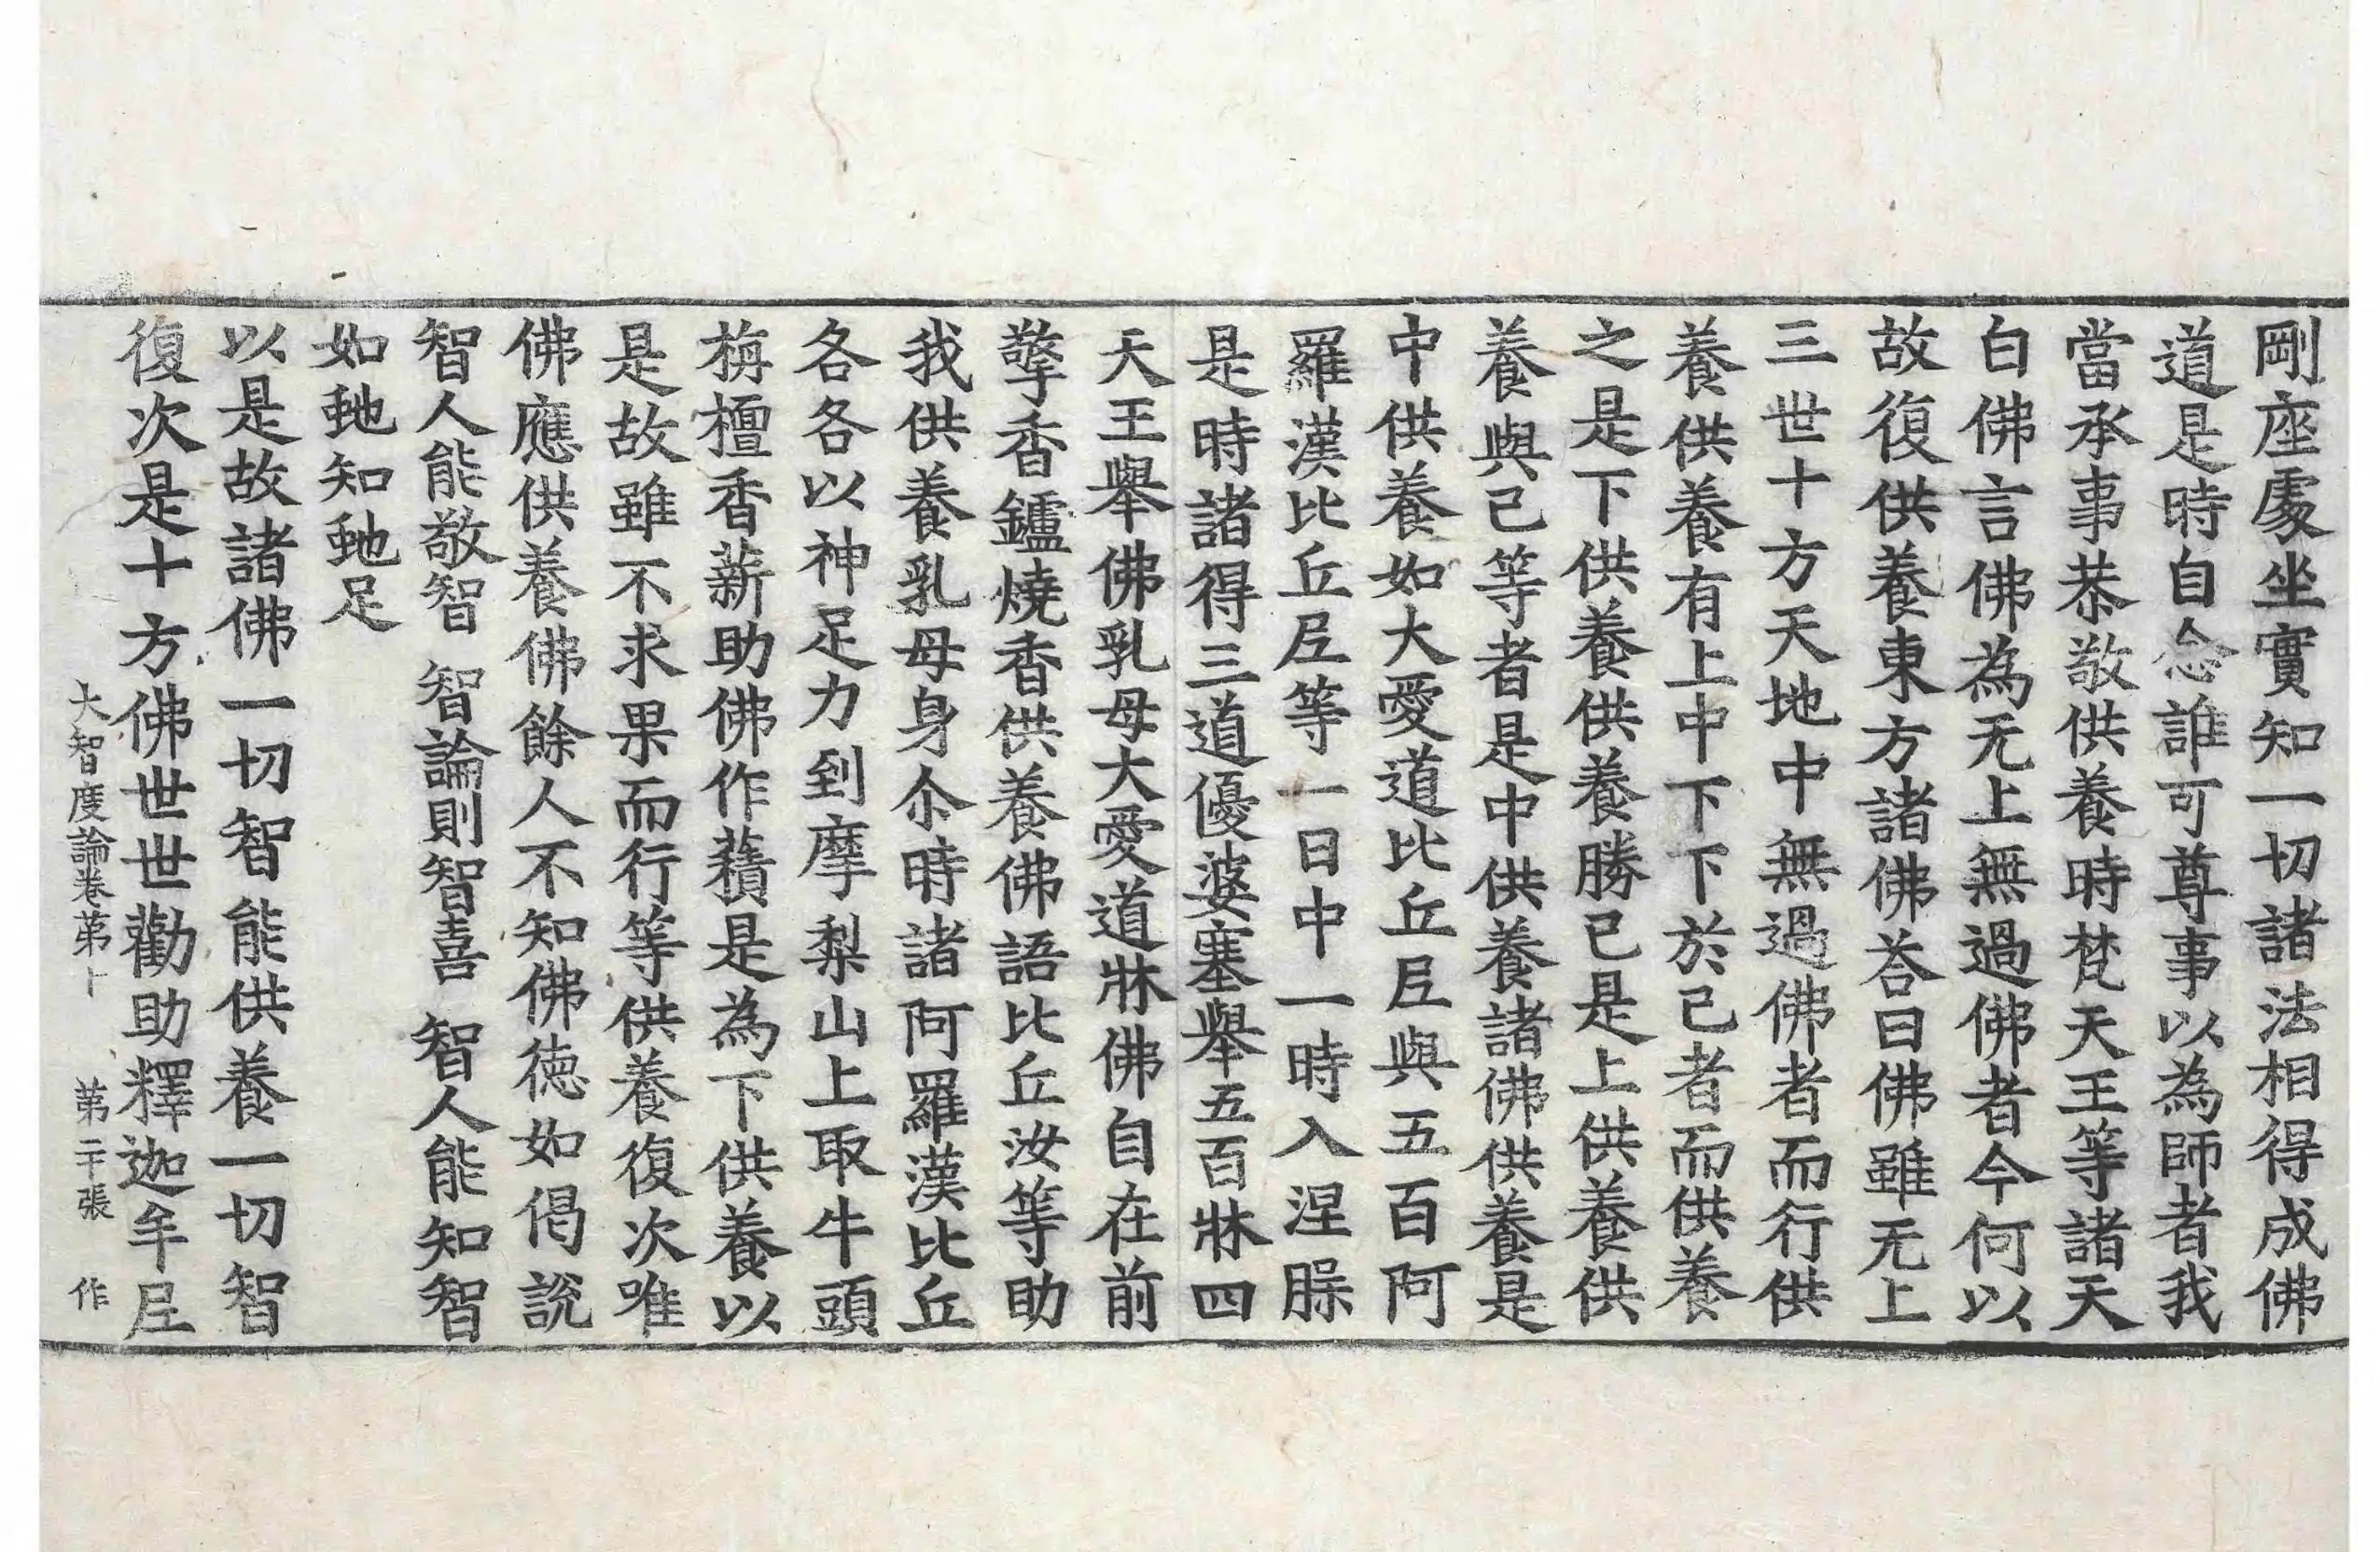 剛座處坐實知一切諸法相得成佛
道是時自念誰可尊事以為師者我
當承事恭敬供養時梵天王等諸天
白佛言佛為无上無過佛者今何以
故復供養東方諸佛荅曰佛雖无上
三世十方天地中無過佛者而行供
養供養有上中下下於己者而供養
之是下供養供養勝己是上供養供
養與己等者是中供養諸佛供養是
中供養如大愛道比丘尼與五百阿
羅漢比丘尼等一日中一時入涅槃
是時諸得三道優婆塞舉五百牀四
天王舉佛乳母大愛道牀佛自在前
擎香鑪燒香供養佛語比丘汝等助
我供養乳母身尒時諸阿羅漢比丘
各各以神足力到摩梨山上取牛頭
栴檀香薪助佛作𧂐是為下供養以
是故雖不求果而行等供養復次唯
佛應供養佛餘人不知佛徳如偈說
智人能敬智　智論則智喜　智人能知智
如虵知虵足
以是故諸佛一切智能供養一切智
復次是十方佛世世勸助釋迦牟尼
大智度論卷苐十　苐二十張　作